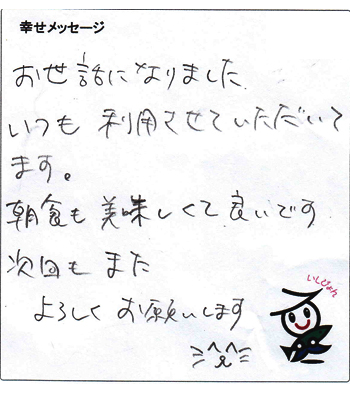 幸せメッセージ
お世話になりました
いつも 利用させていただいて
ます。
朝食も 美味しくて 良いです
次回も また
よろしく お願いします